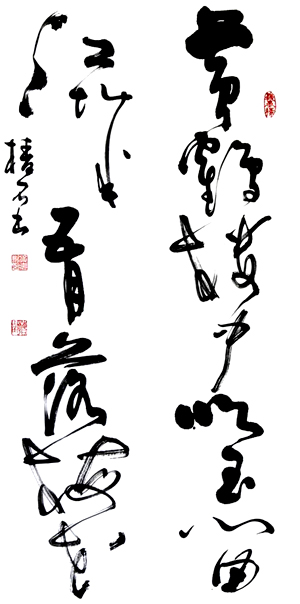 黄鶴樓中吹玉笛
江城五月落梅花